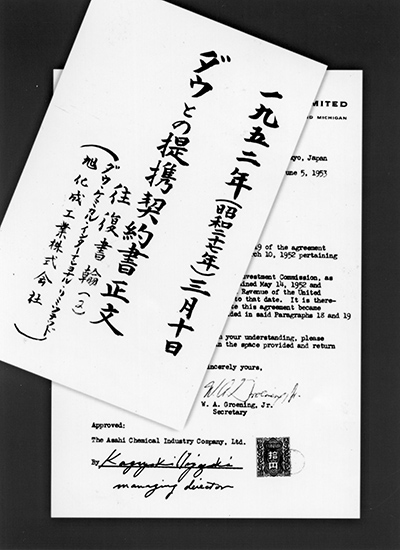 一九五二年(昭和二十七年)三月十日
ダウとの提携契約書正文
往復書翰(2)
旭化成工業株式会社
LIMITED
MICHIGAN
Tokyo, Japan
June 5, 1953
19 of the agreement
March 10, 1952 pertaining
Investment Commission, as
May 14, 1952 and
Revenue of the United
to that date. It is there-
this agreement became
in said Paragraphs 18 and 19
your understanding, please
the space provided and return
Sincerely yours,
W. A. Groening, Jr.
Secretary
Approved:
The Asahi Chemical Industry Company, Ltd.
By
managing director
拾円